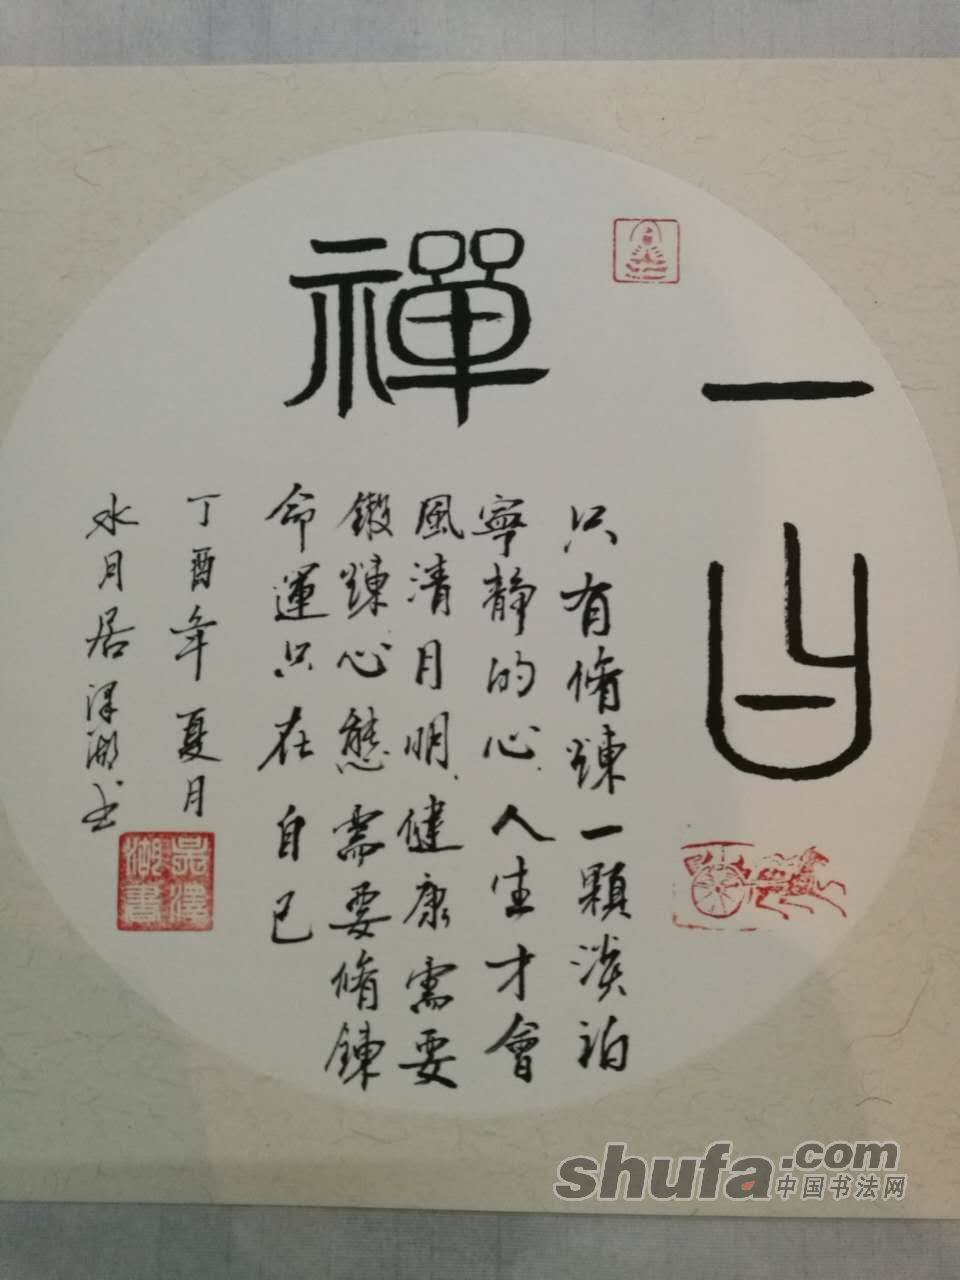 一
禪
只有脩煉一顆淡泊
寧靜的心人生才會
風清月明健康需要
鍛煉心態需要脩鍊
命運只在自己
丁酉年夏月
水月居泽湖书
吴澤湖書
shufa.com
中国书法网